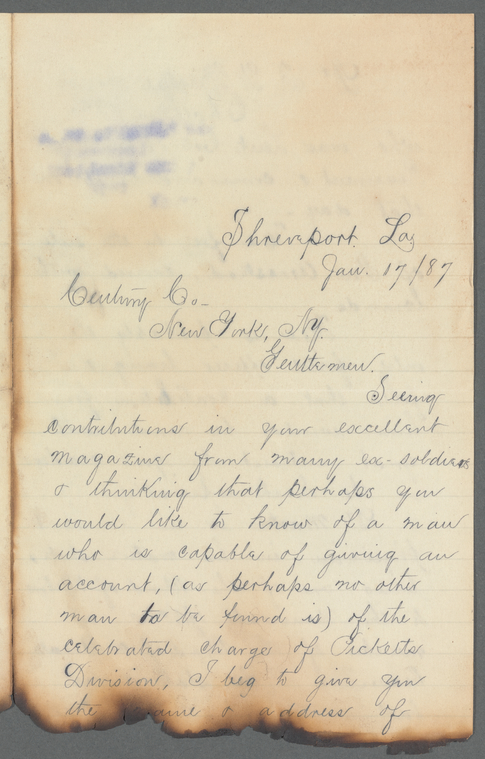 Shreveport. La,
Jan. 17/87
Century Co-
New York, Ny.
Gentlemen.
Seeing
contributions in your excellent
magazine from many ex-soldiers
& thinking that perhaps you
would like to know of a man
who is capable of giving an
account, (as perhaps no other
man to be found is) of the
celebrated charge of Picketts
Division, I beg to give you
the name & address of